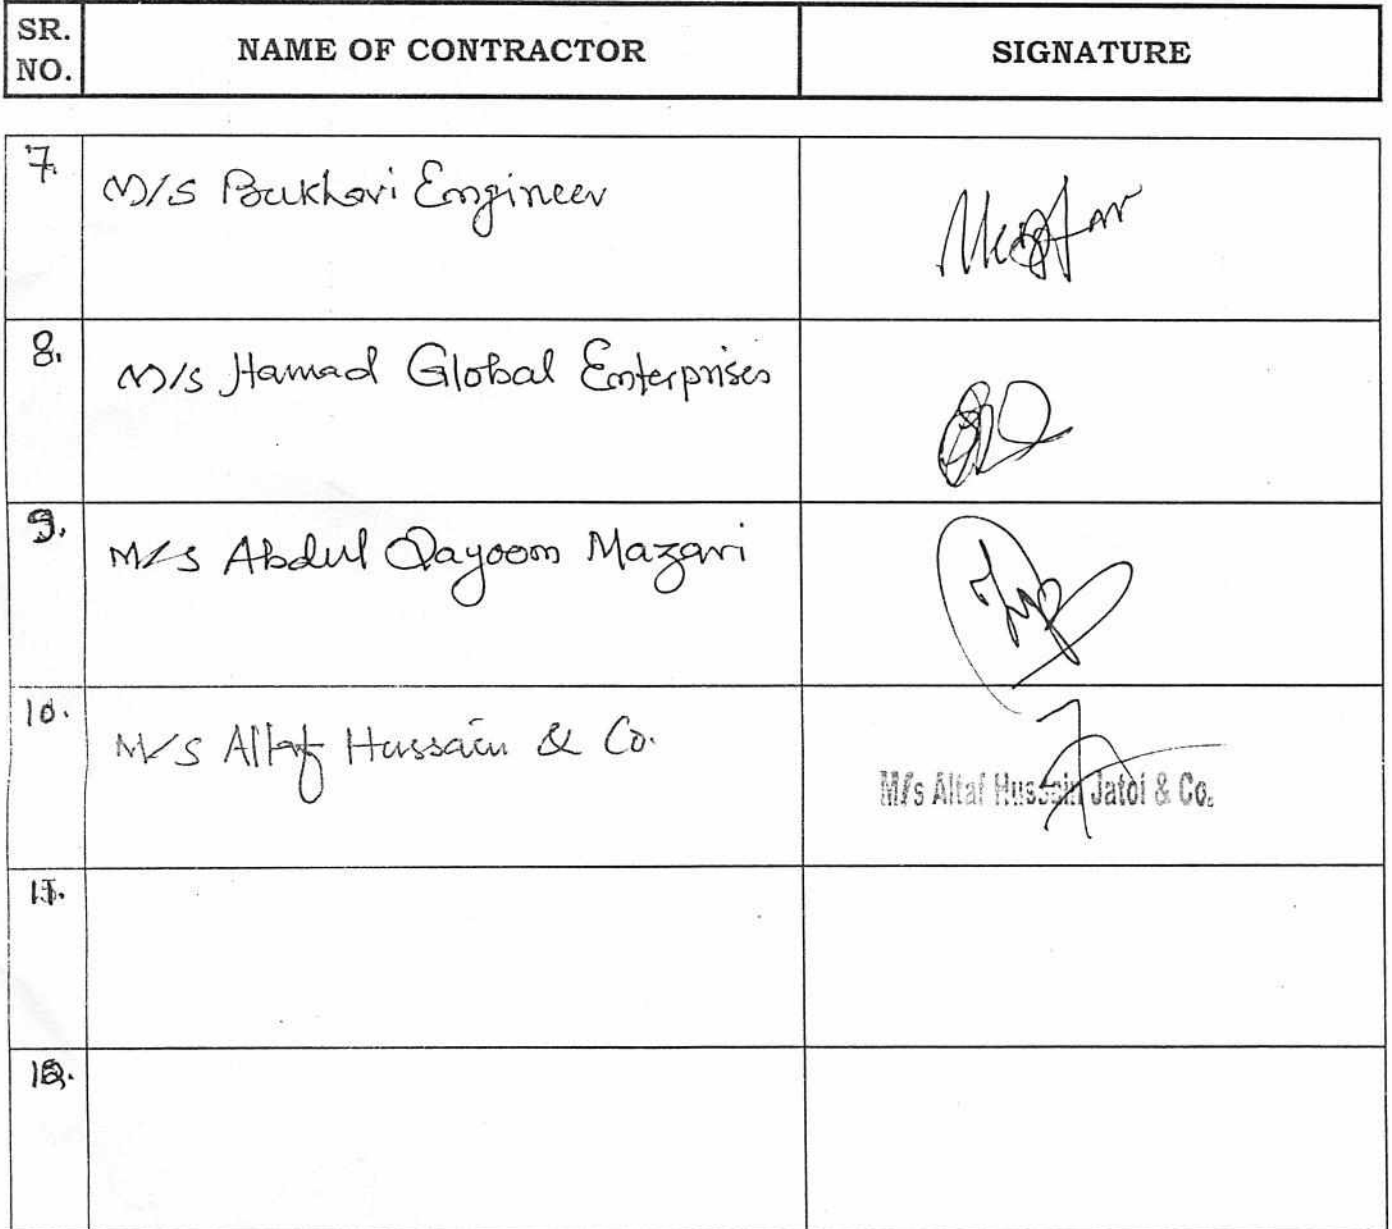 SR. NO.
NAME OF CONTRACTOR
SIGNATURE
7.
M/S Bukhari Engineer
8.
M/s Hamad Global Enterprises
9.
M/s Abdul Qayoom Mazari
10.
M/s Altaf Hussain & Co.
M/s Altaf Hussain Jatoi & Co.
11.
12.